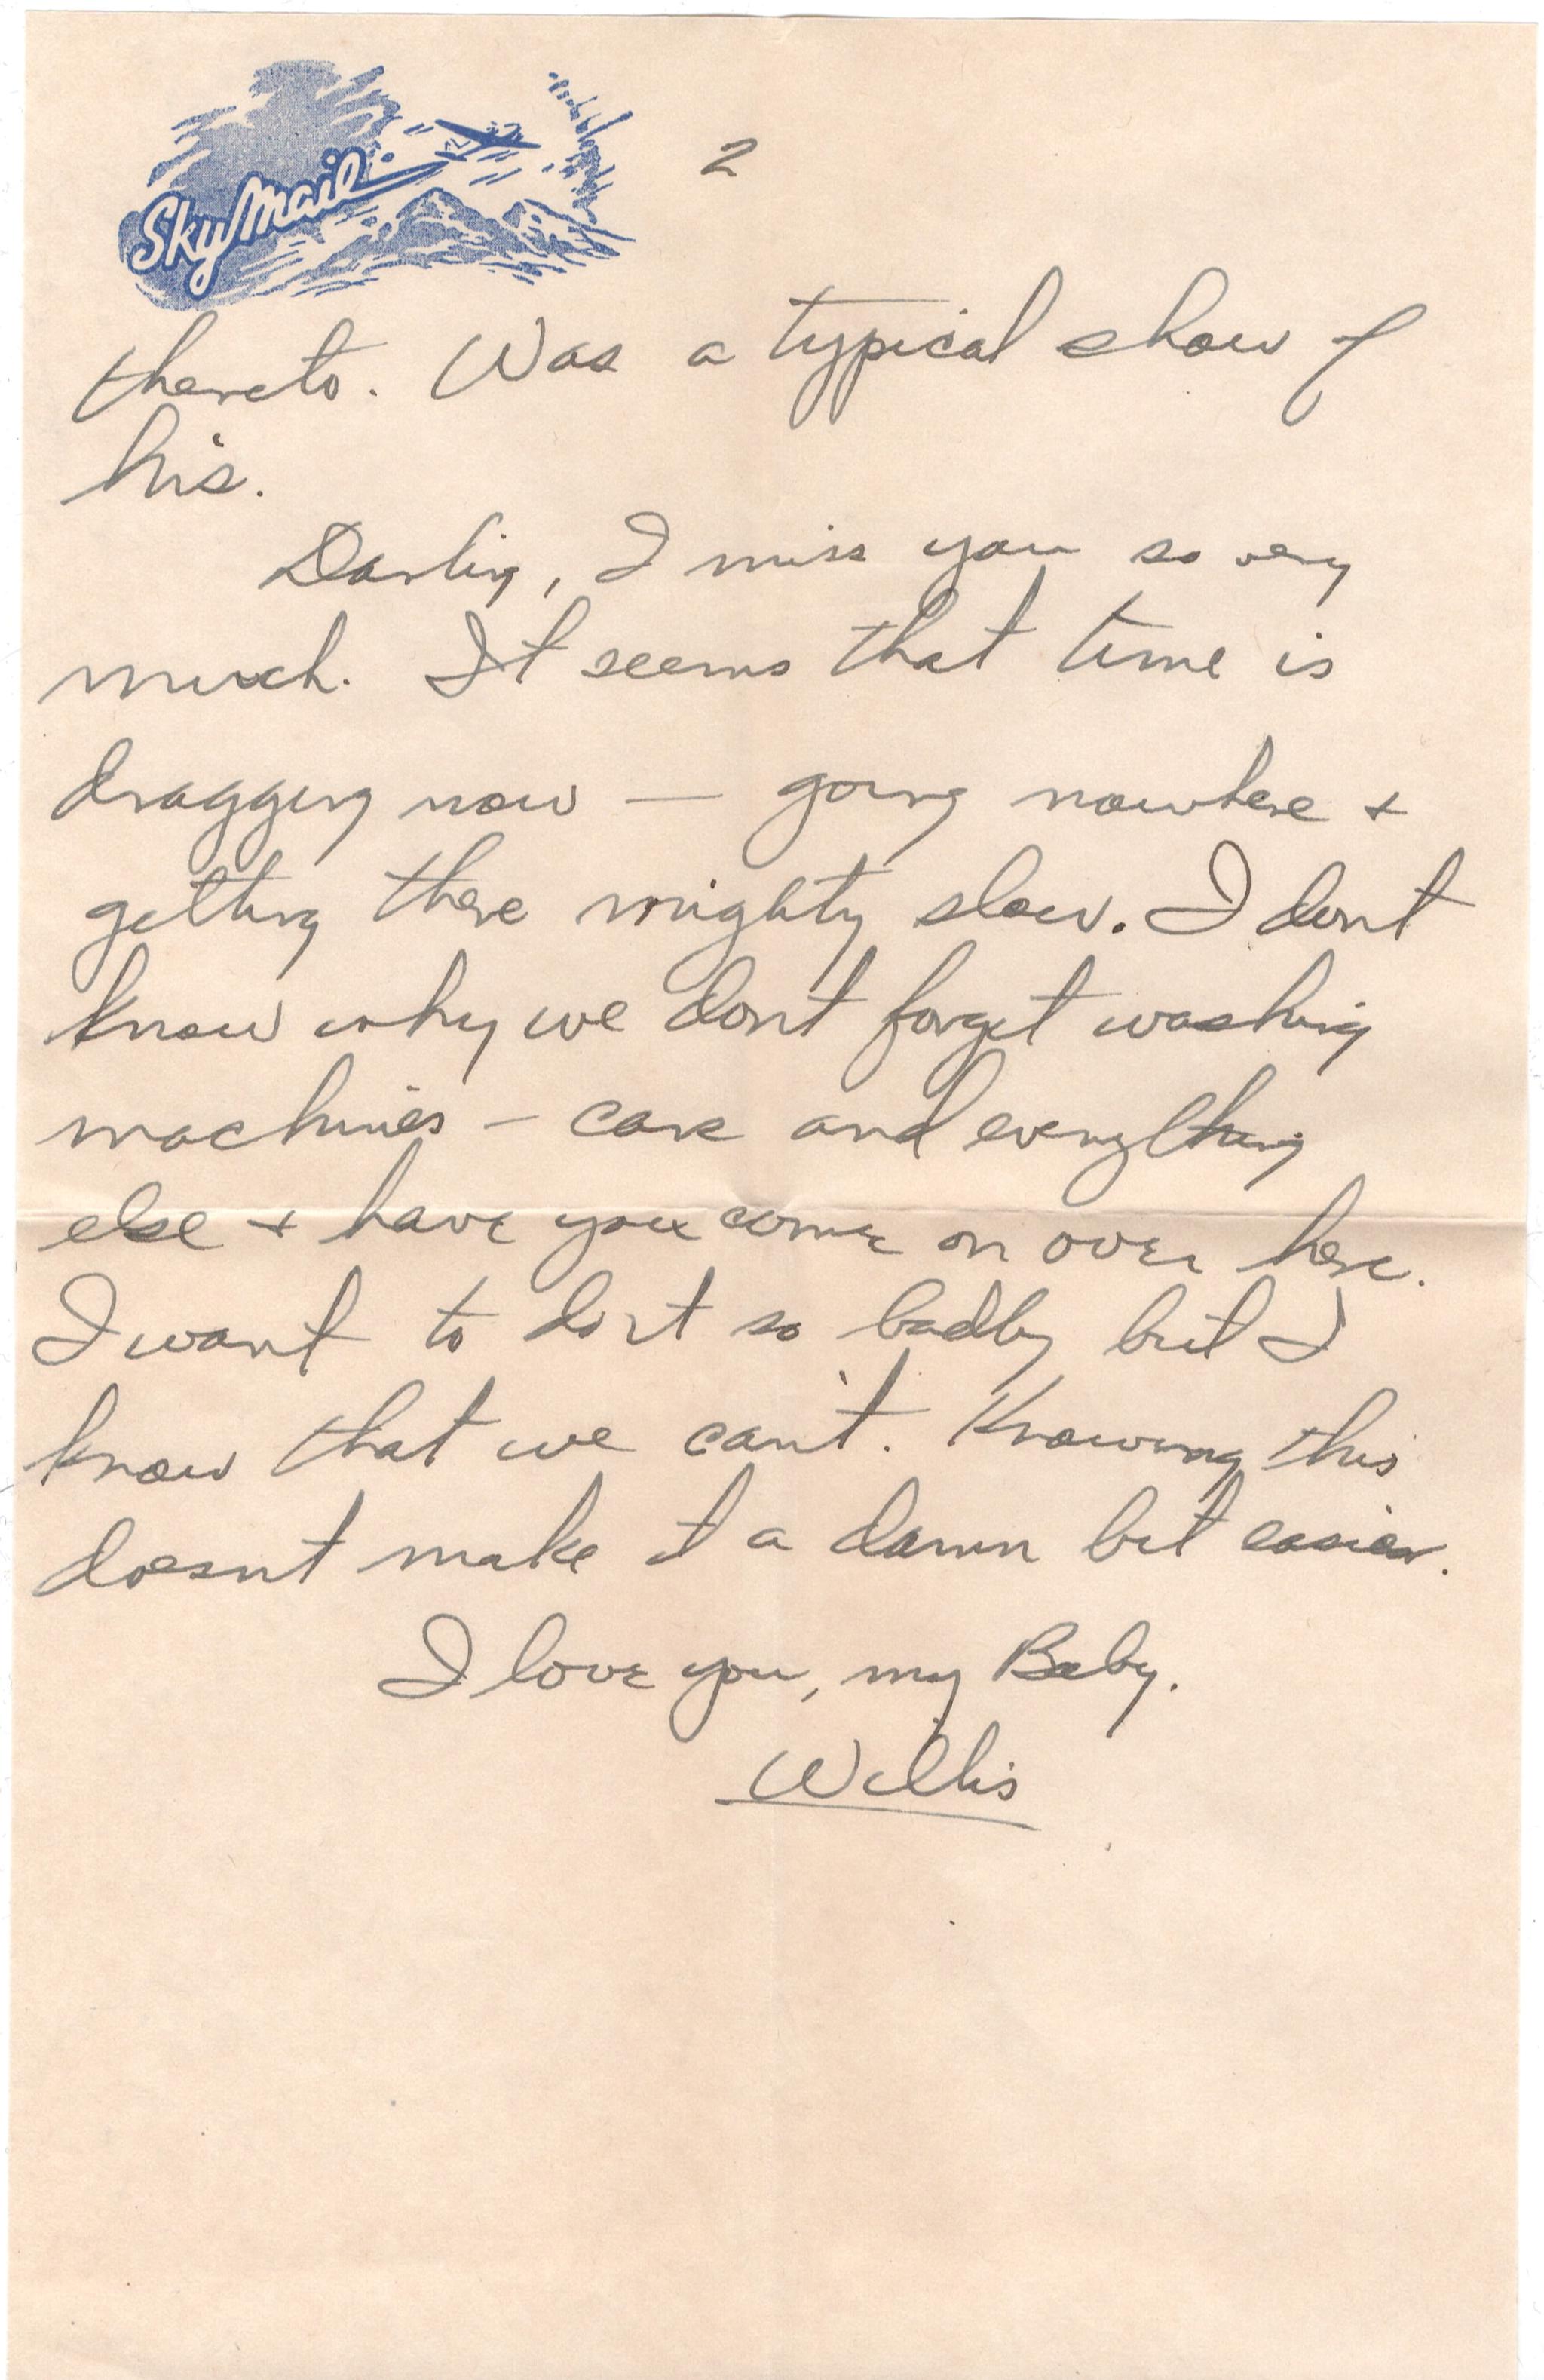 SkyMail
2
thereto. Was a typical show of
his.
Darling, I miss you so very
much. It seems that time is
dragging now — going nowhere +
getting there mighty slow. I dont
know why we dont forget washing
machines – cars and everything
else + have you come on over here.
I want to do it so badly but I
know that we can't. Knowing this
doesnt make it a damn bit easier.
I love you, my Baby.
Willis